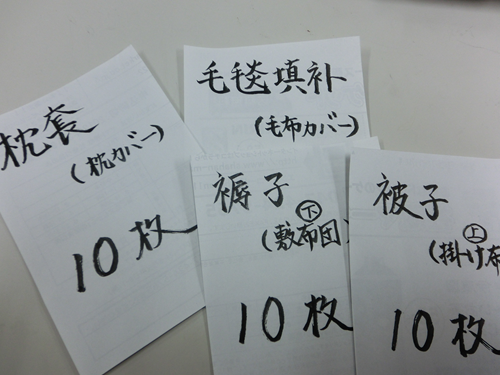 枕套
(枕カバー)
10枚
毛毯填补
(毛布カバー)
褥子
下
(敷布団)
10枚
被子
上
(掛け布
10枚